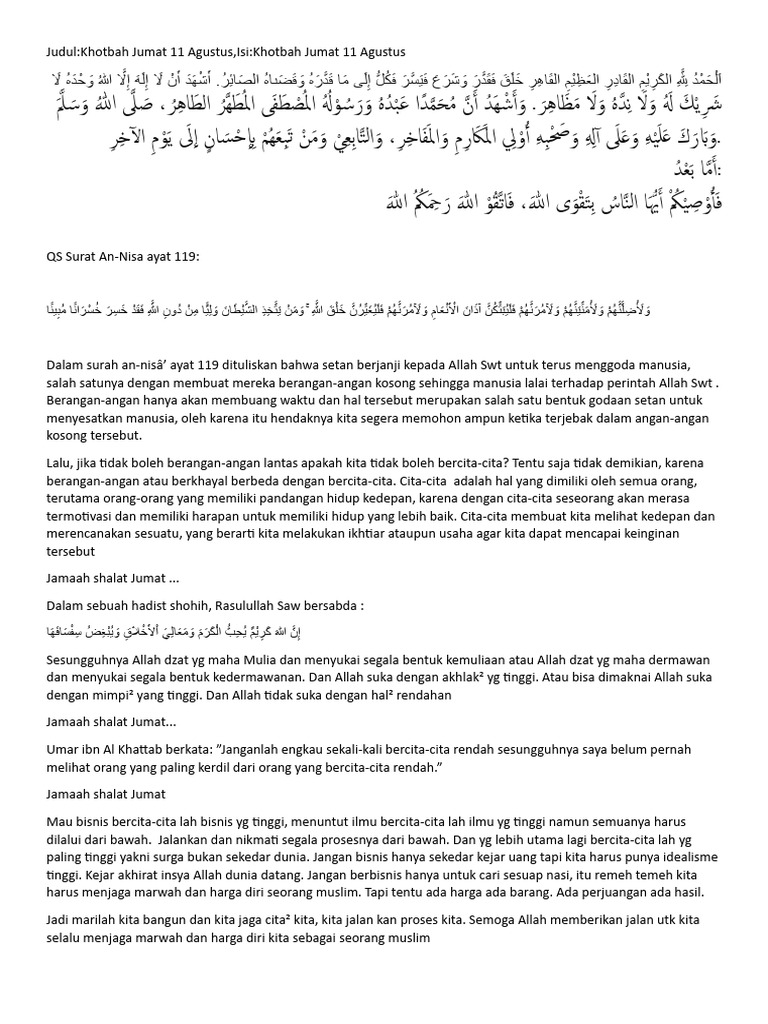 Judul:Khotbah Jumat 11 Agustus,Isi:Khotbah Jumat 11 Agustus
اَلْحَمْدُ لِلَّهِ الكَرِيْمِ القَادِرِ العَظِيْمِ القَاهِرِ خَلَقَ فَقَدَّرَ وَشَرَعَ فَيَسَّرَ فَكُلُّ إِلٰى مَا قَدَّرَهُ وَقَضَاهُ الصَائِرُ. أَشْهَدُ أَنْ لَا إِلٰهَ إِلَّا اللهُ وَحْدَهُ لَا
شَرِيْكَ لَهُ وَلَا نِدَّهُ وَلَا مَظَاهِرَ. وَأَشْهَدُ أَنَّ مُحَمَّدًا عَبْدُهُ وَرَسُوْلُهُ المُصْطَفَى المُطَهَّرُ الطَاهِرُ، صَلَّى اللهُ وَسَلَّمَ
وَبَارَكَ عَلَيْهِ وَعَلَى آلِهِ وَصَحْبِهِ أُوْلِي المَكَارِمِ وَالمَفَاخِرِ، وَالتَّابِعِيْ وَمَنْ تَبِعَهُمْ بِإِحْسَانٍ إِلَى يَوْمِ الآخِرِ.
أَمَّا بَعْدُ:
فَأُوْصِيْكُمْ أَيُّهَا النَّاسُ بِتَقْوَى اللهَ، فَاتَّقُوْ اللهَ رَحِمَكُمُ اللهَ
QS Surat An-Nisa ayat 119:
وَلَأُضِلَّنَّهُمْ وَلَأُمَنِّيَنَّهُمْ وَلَآمُرَنَّهُمْ فَلَيُبَتِّكُنَّ آذَانَ الْأَنْعَامِ وَلَآمُرَنَّهُمْ فَلَيُغَيِّرُنَّ خَلْقَ اللَّهِ ۚ وَمَنْ يَتَّخِذِ الشَّيْطَانَ وَلِيًّا مِنْ دُونِ اللَّهِ فَقَدْ خَسِرَ خُسْرَانًا مُبِينًا
Dalam surah an-nisâ’ ayat 119 dituliskan bahwa setan berjanji kepada Allah Swt untuk terus menggoda manusia,
salah satunya dengan membuat mereka berangan-angan kosong sehingga manusia lalai terhadap perintah Allah Swt .
Berangan-angan hanya akan membuang waktu dan hal tersebut merupakan salah satu bentuk godaan setan untuk
menyesatkan manusia, oleh karena itu hendaknya kita segera memohon ampun ketika terjebak dalam angan-angan
kosong tersebut.
Lalu, jika tidak boleh berangan-angan lantas apakah kita tidak boleh bercita-cita? Tentu saja tidak demikian, karena
berangan-angan atau berkhayal berbeda dengan bercita-cita. Cita-cita  adalah hal yang dimiliki oleh semua orang,
terutama orang-orang yang memiliki pandangan hidup kedepan, karena dengan cita-cita seseorang akan merasa
termotivasi dan memiliki harapan untuk memiliki hidup yang lebih baik. Cita-cita membuat kita melihat kedepan dan
merencanakan sesuatu, yang berarti kita melakukan ikhtiar ataupun usaha agar kita dapat mencapai keinginan
tersebut
Jamaah shalat Jumat ...
Dalam sebuah hadist shohih, Rasulullah Saw bersabda :
إِنَّ الله كَرِيْمٌ يُحِبُّ الْكَرَمَ وَمَعَالِيَ اْلأَخْلَاقِ وَيُبْغِضُ سِفْسَافَهَا
Sesungguhnya Allah dzat yg maha Mulia dan menyukai segala bentuk kemuliaan atau Allah dzat yg maha dermawan
dan menyukai segala bentuk kedermawanan. Dan Allah suka dengan akhlak² yg tinggi. Atau bisa dimaknai Allah suka
dengan mimpi² yang tinggi. Dan Allah tidak suka dengan hal² rendahan
Jamaah shalat Jumat...
Umar ibn Al Khattab berkata: ”Janganlah engkau sekali-kali bercita-cita rendah sesungguhnya saya belum pernah
melihat orang yang paling kerdil dari orang yang bercita-cita rendah.”
Jamaah shalat Jumat
Mau bisnis bercita-cita lah bisnis yg tinggi, menuntut ilmu bercita-cita lah ilmu yg tinggi namun semuanya harus
dilalui dari bawah.  Jalankan dan nikmati segala prosesnya dari bawah. Dan yg lebih utama lagi bercita-cita lah yg
paling tinggi yakni surga bukan sekedar dunia. Jangan bisnis hanya sekedar kejar uang tapi kita harus punya idealisme
tinggi. Kejar akhirat insya Allah dunia datang. Jangan berbisnis hanya untuk cari sesuap nasi, itu remeh temeh kita
harus menjaga marwah dan harga diri seorang muslim. Tapi tentu ada harga ada barang. Ada perjuangan ada hasil.
Jadi marilah kita bangun dan kita jaga cita² kita, kita jalan kan proses kita. Semoga Allah memberikan jalan utk kita
selalu menjaga marwah dan harga diri kita sebagai seorang muslim